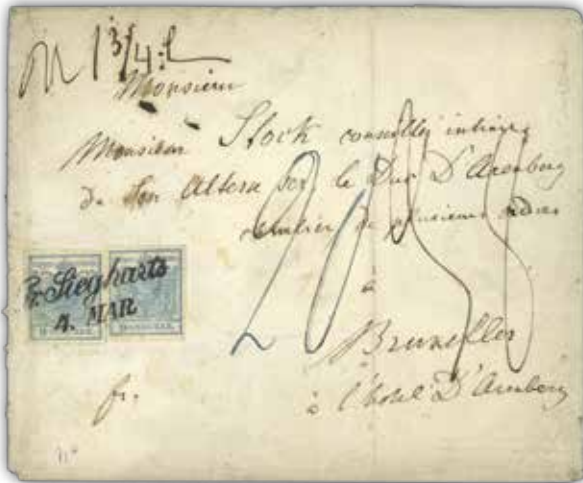 1 3/4 L
Monsieur
Monsieur Stock conseiller intime
de Son Altesse le Duc D'Arenberg
de plusieurs ordres
20
à
Gr. Siegharts
4. MAR
Bruxelles
fr. à l'hotel D'Arenberg